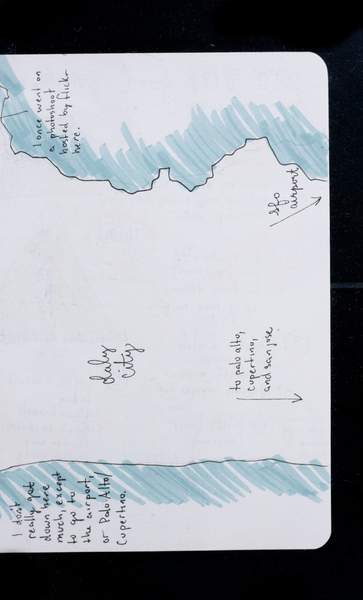 I don't
really get
down here
much, except
to go to
the airport,
or Palo Alto/
Cupertino.
I once went on
a photoshoot
hosted by flickr
here.
daly
city
to palo alto,
cupertino,
and san jose
sfo
airport